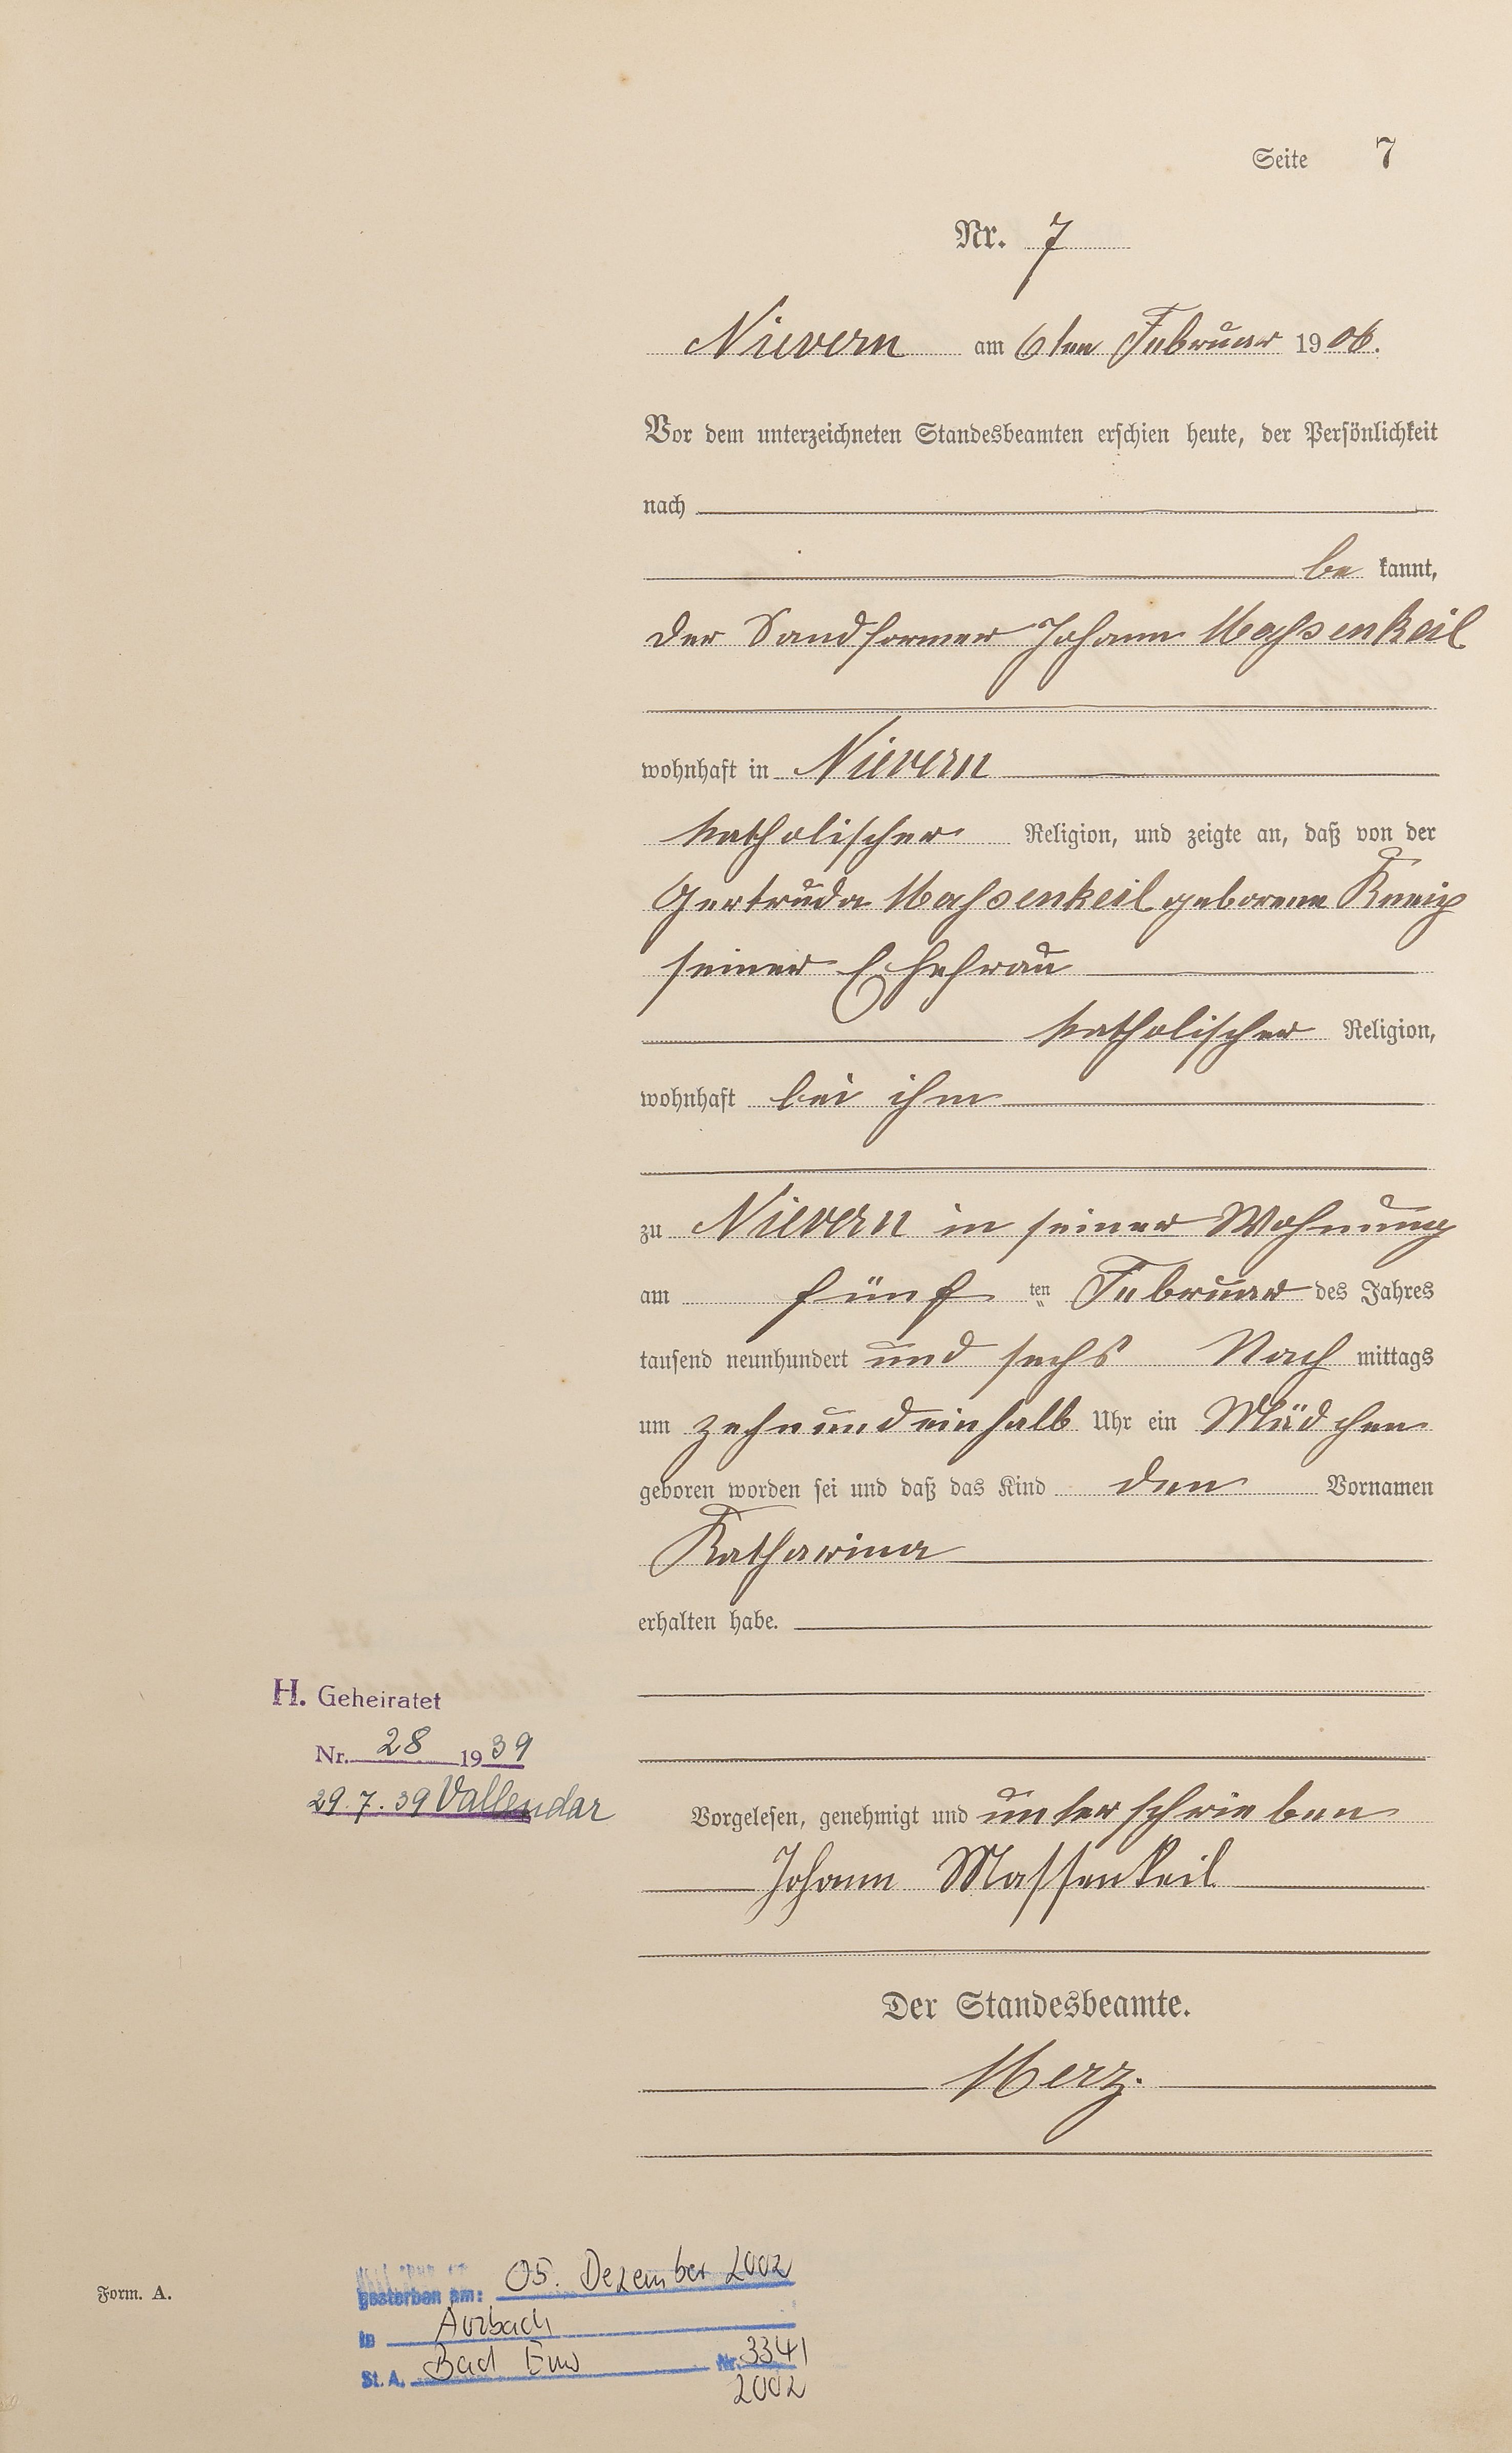 Seite 7
Nr. 7
Nievern am 6ten Februar 1906.
Vor dem unterzeichneten Standesbeamten erschien heute, der Persönlichkeit
nach
be kannt,
der Sandformer Johann Massenkeil
wohnhaft in Nievern
katholischer Religion, und zeigte an, daß von der
Gertruda Massenkeil geborene Kneip
seiner Ehefrau
katholischer Religion,
wohnhaft bei ihm
zu Nievern in seiner Wohnung
am fünf ten Februar des Jahres
tausend neunhundert und sechs Nach mittags
um zehnundeinhalb Uhr ein Mädchen
geboren worden sei und daß das Kind den Vornamen
Katharina
erhalten habe.
H. Geheiratet
Nr. 28 1939
29.7.39 Vallendar
Vorgelesen, genehmigt und unterschrieben
Johann Massenkeil
Der Standesbeamte.
Merz.
Form. A.
gestorben am: 05. Dezember 2002
in Arzbach
St. A. Bad Ems Nr. 3341
2002